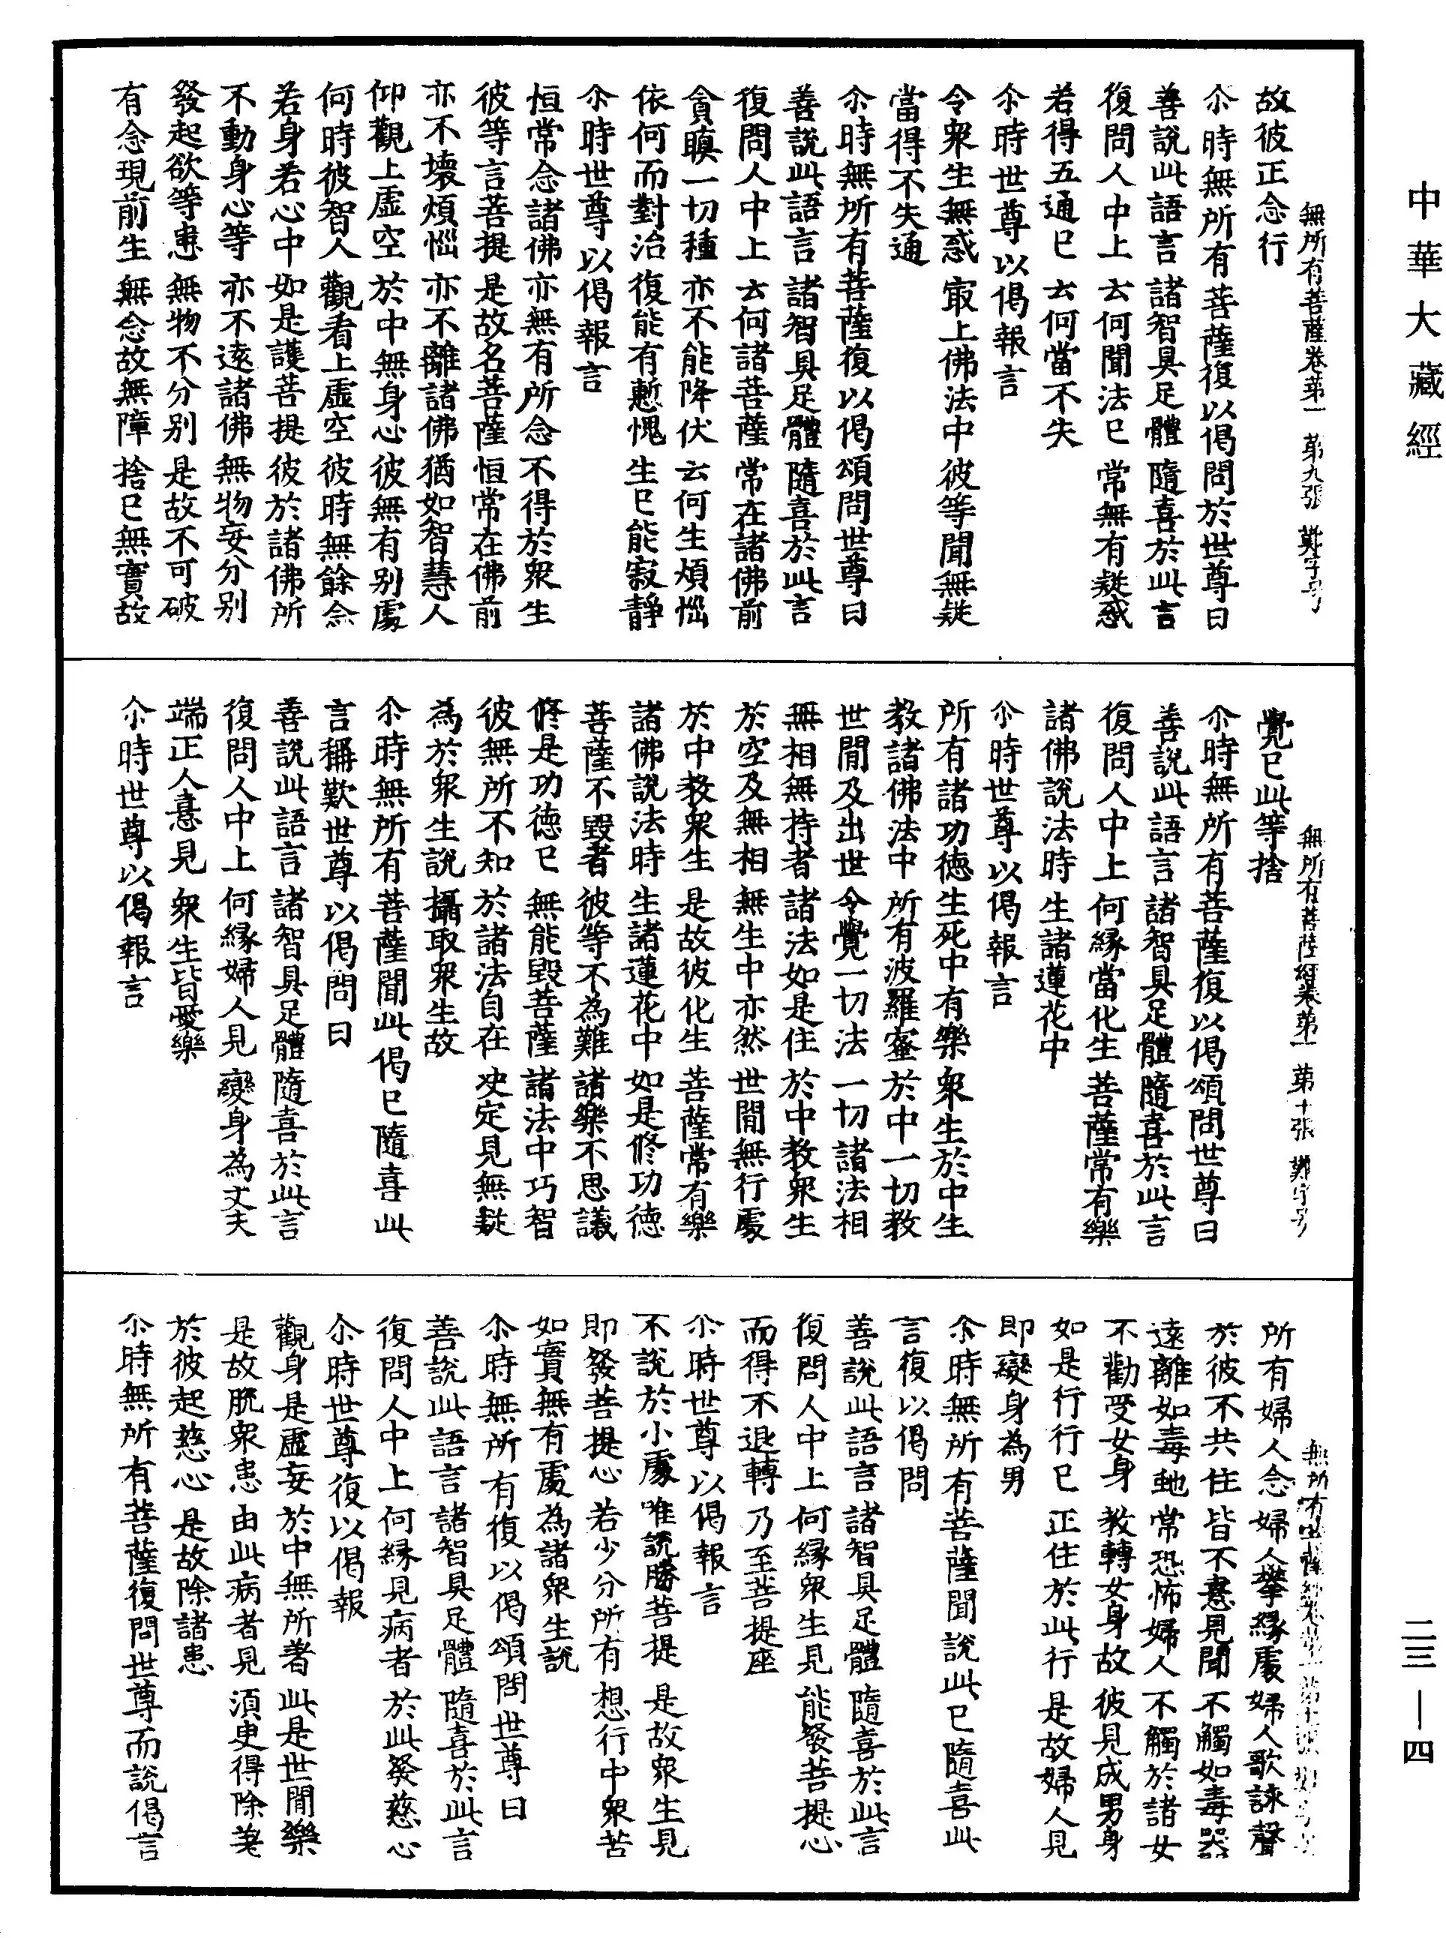 中華大藏經
無所有菩薩卷第一 第九張 鄭字号
故彼正念行
尒時無所有菩薩復以偈問於世尊曰
善說此語言 諸智具足體 隨喜於此言
復問人中上 云何聞法已 常無有疑惑
若得五通已 云何當不失
尒時世尊以偈報言
令衆生無惑 㝡上佛法中 彼等聞無疑
當得不失通
尒時無所有菩薩復以偈頌問世尊曰
善說此語言 諸智具足體 隨喜於此言
復問人中上 云何諸菩薩 常在諸佛前
貪瞋一切種 亦不能降伏 云何生煩惱
依何而對治 復能有慙愧 生已能寂靜
尒時世尊以偈報言
恒常念諸佛 亦無有所念 不得於衆生
彼等言菩提 是故名菩薩 恒常在佛前
亦不壞煩惱 亦不離諸佛 猶如智慧人
仰觀上虛空 於中無身心 彼無有別處
何時彼智人 觀看上虛空 彼時無餘念
若身若心中 如是護菩提 彼於諸佛所
不動身心等 亦不遠諸佛 無物妄分別
發起欲等患 無物不分別 是故不可破
有念現前生 無念故無障 捨已無實故
無所有菩薩經卷第一 第十張 鄭字号
覺已此等捨
尒時無所有菩薩復以偈頌問世尊曰
善說此語言 諸智具足體 隨喜於此言
復問人中上 何緣當化生 菩薩常有樂
諸佛說法時 生諸蓮花中
尒時世尊以偈報言
所有諸功德 生死中有樂 衆生於中生
教諸佛法中 所有波羅蜜 於中一切教
世間及出世 令覺一切法 一切諸法相
無相無持者 諸法如是住 於中教衆生
於空及無相 無生中亦然 世間無行處
於中教衆生 是故彼化生 菩薩常有樂
諸佛說法時 生諸蓮花中 如是修功德
菩薩不毀者 彼等不為難 諸樂不思議
修是功德已 無能毀菩薩 諸法中巧智
彼無所不知 於諸法自在 决定見無疑
為於衆生說 攝取衆生故
尒時無所有菩薩聞此偈已隨喜此
言稱歎世尊以偈問曰
善說此語言 諸智具足體 隨喜於此言
復問人中上 何緣婦人見 變身為丈夫
端正人憙見 衆生皆愛樂
尒時世尊以偈報言
所有婦人念 婦人攀緣處 婦人歌詠聲
於彼不共住 皆不憙見聞 不觸如毒器
遠離如毒虵 常恐怖婦人 不觸於諸女
不勸受女身 教轉女身故 彼見成男身
如是行行已 正住於此行 是故婦人見
即變身為男
尒時無所有菩薩聞說此已隨喜此
言復以偈問
善說此語言 諸智具足體 隨喜於此言
復問人中上 何緣衆生見 能發菩提心
而得不退轉 乃至菩提座
尒時世尊以偈報言
不說於小處 唯說勝菩提 是故衆生見
即發菩提心 若少分所有 想行中衆苦
如實無有處 為諸衆生說
尒時無所有復以偈頌問世尊曰
善說此語言 諸智具足體 隨喜於此言
復問人中上 何緣見病者 於此發慈心
尒時世尊復以偈報
觀身是虛妄 於中無所著 此是世間樂
是故脫衆患 由此病者見 須臾得除差
於彼起慈心 是故除諸患
尒時無所有菩薩復問世尊而說偈言
二三—四